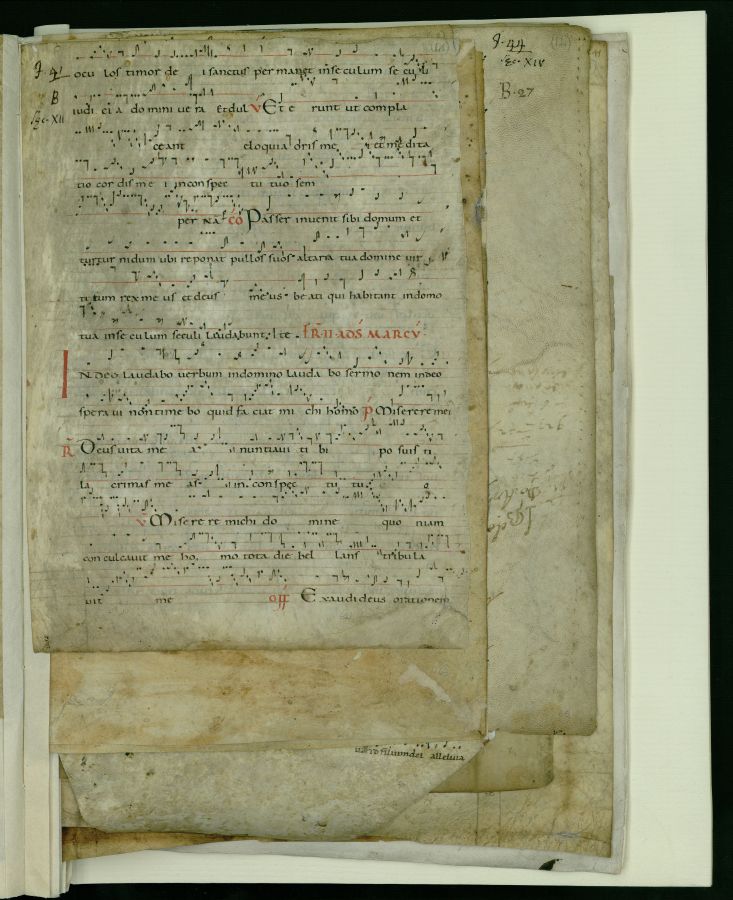 F. 41
B
Sec. XII
F. 44
Sec. XIV
B. 27
ocu los timor de i sanctus per manet inse culum se culi
iudi ci a do mini ue ra Et dul V Et e runt ut compla
ceant eloquia oris me i et me dita
tio cor dis me i inconspec tu tuo sem
per NA CO Passer inuenit sibi domum et
turtur nidum ubi reponat pullos suos altaria tua domine uir
tutum rex me us et deus me us be ati qui habitant indomo
tua inse culum seculi laudabunt te FR II AD S MARCU
IN deo laudabo uerbum indomino lauda bo sermo nem indeo
spera ui non time bo quid fa ciat mi chi homo P Miserere mei
R Deus uita me a nuntiaui ti bi po suis ti
la crimas me as in conspec tu tu o
V Mise re re michi do mine quo niam
con culcauit me ho mo tota die bel lans tribula
uit me off Exaudi deus orationem
filium dei alleluia